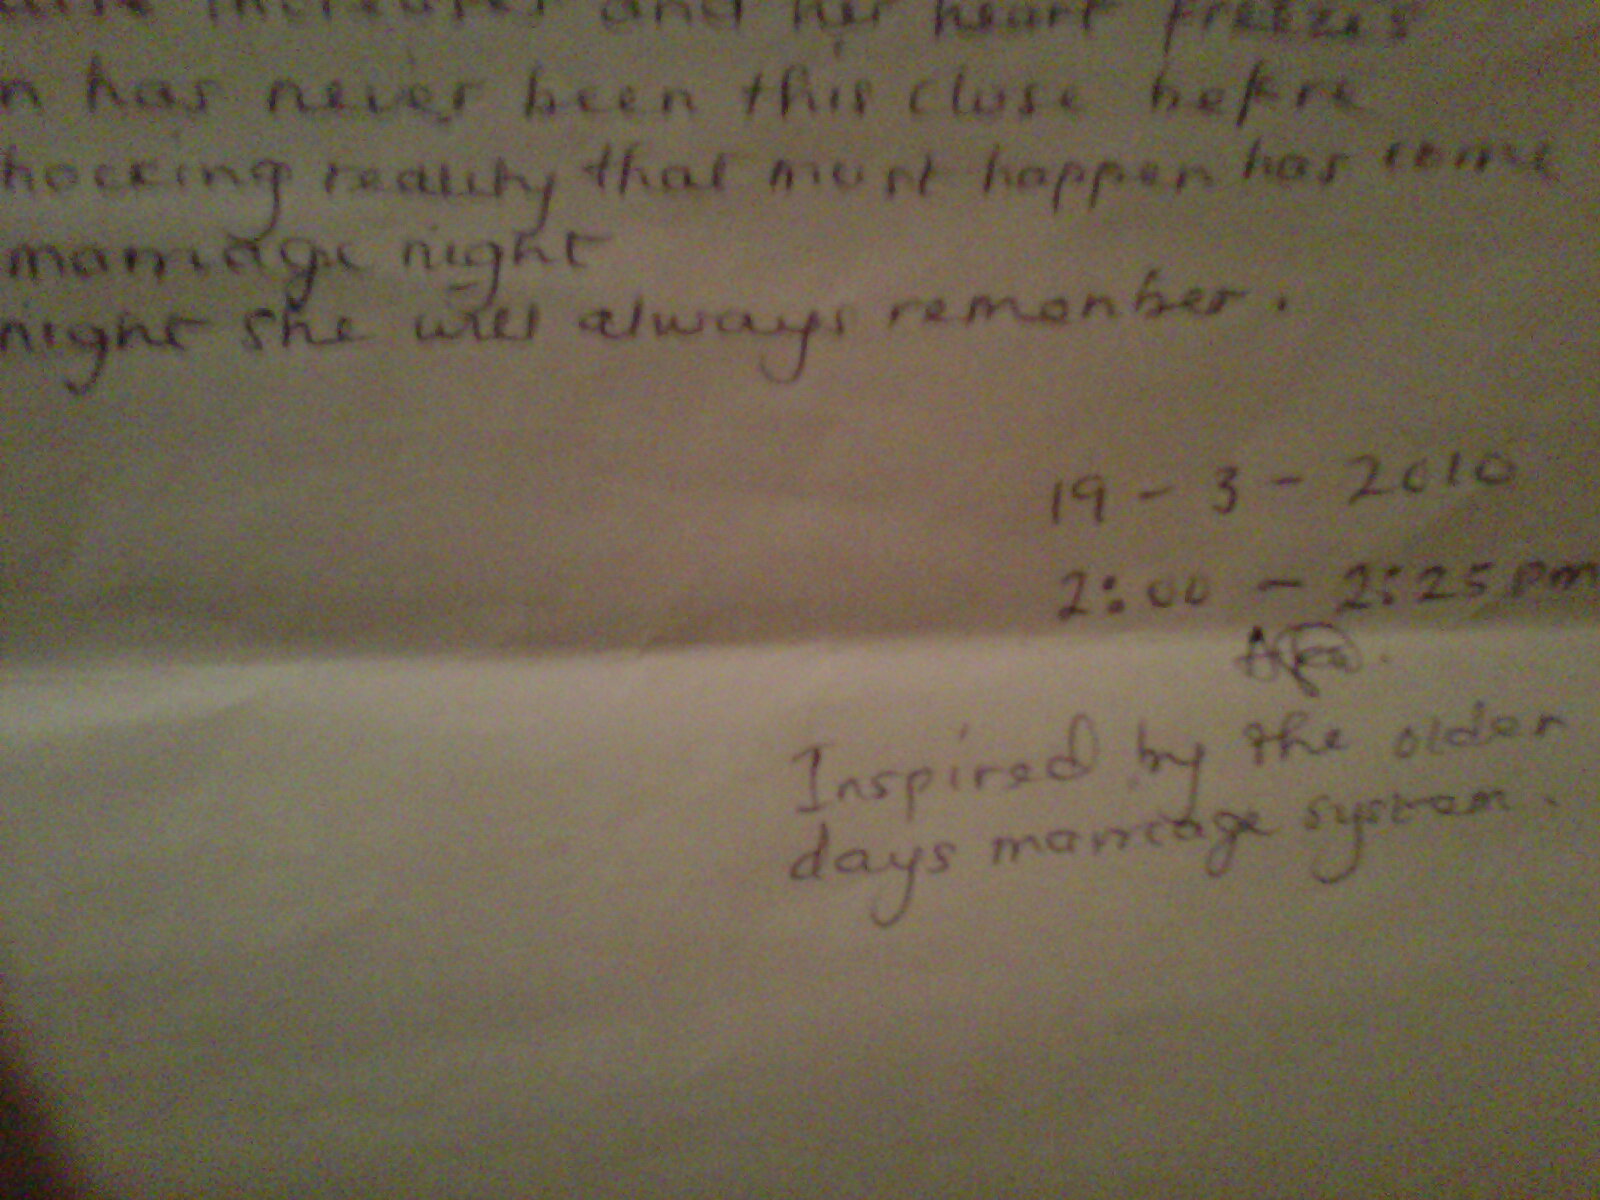 increases and her heart freezes
n has never been this close before
hocking reality that must happen has come
marriage night
night she will always remember.
19 - 3 - 2010
2:00 - 2:25 pm
Inspired by the older
days marriage system.